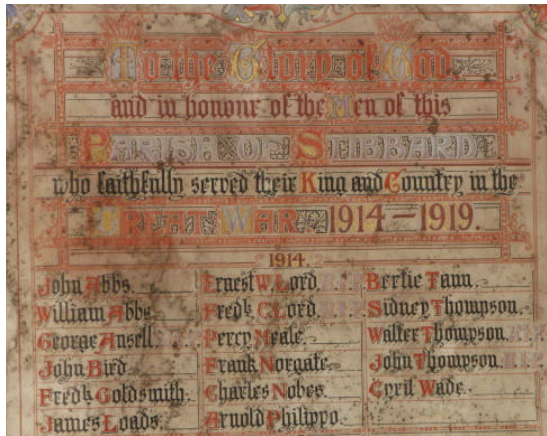 To the Glory of God
and in honour of the Men of this
PARISH OF STIBBARD
who faithfully served their King and Country in the
GREAT WAR 1914 – 1919.
1914.
John Abbs.
William Abbs
George Ansell. R.I.P.
John Bird.
Fredk Goldsmith.
James Loads.
Ernest W. Lord. R.I.P.
Fredk C. Lord. R.I.P.
Percy Neale.
Frank Norgate.
Charles Nobes.
Arnold Philippo.
Bertie Tann.
Sidney Thompson.
Walter Thompson. R.I.P.
John Thompson. R.I.P.
Cyril Wade.